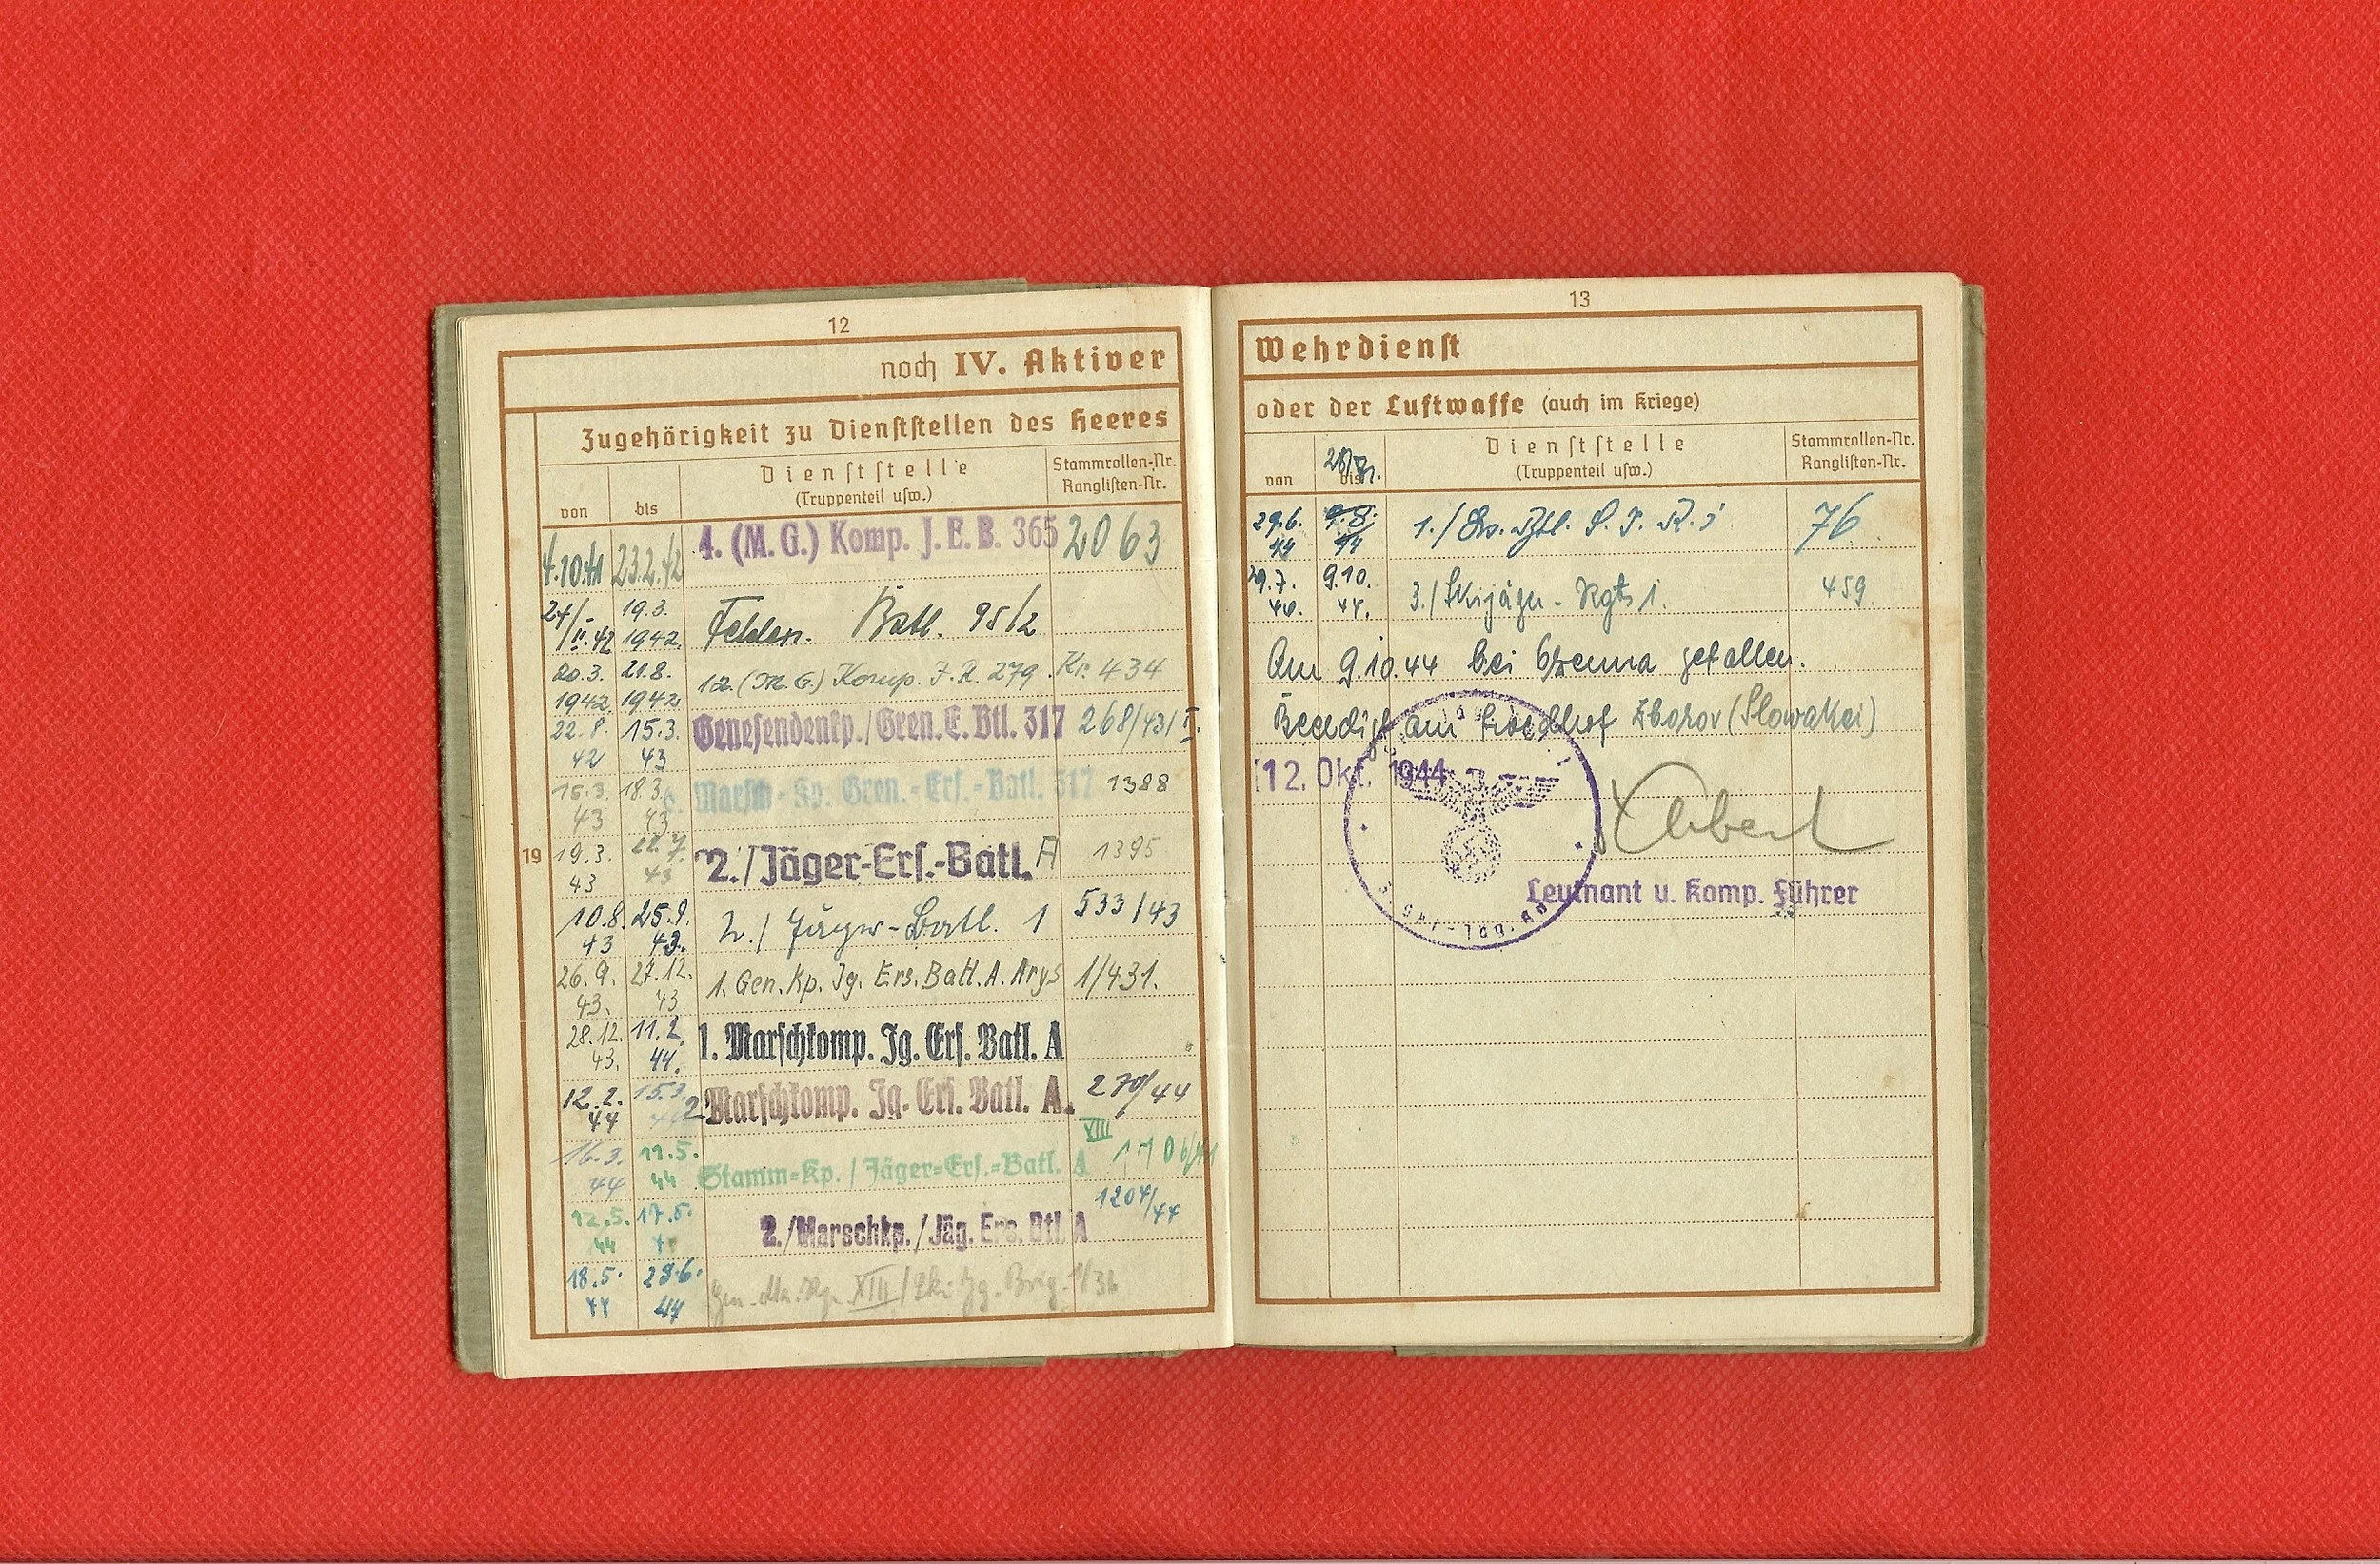 12
noch IV. Aktiver
Zugehörigkeit zu Dienststellen des Heeres
von
bis
Dienststelle
(Truppenteil usw.)
Stammrollen-Nr.
Ranglisten-Nr.
4.10.41 23.2.42 4. (M.G.) Komp. J.E.B. 365 2063
24/II.42 19.3.1942 Batl. 95/2
20.3.1942 21.8.1942 12. (M.G.) Komp. J.R. 279 Kr. 434
22.8.42 15.3.43 Genesendenkp./Gren.E.Btl. 317 268/43/II.
15.3.43 18.3.43 Marsch-Kp. Gren.-Ers.-Batl. 317 1388
19
19.3.43 22.7.43 2./Jäger-Ers.-Batl. A 1395
10.8.43 25.9.43. 2./Jäger-Batl. 1 533/43
26.9.43. 27.12.43 1. Gen.Kp. Jg. Ers. Batl. A. Arys 1/431.
28.12.43. 11.2.44. 1. Marschkomp. Jg. Ers. Batl. A
12.2.44 15.3.44 2 Marschkomp. Jg. Ers. Batl. A. 270/44
16.3.44 11.5.44 Stamm-Kp./Jäger-Ers.-Batl. A VIII
12.5.44 17.5. 2./Marschkp./Jäg. Ers. Btl. A 1204/44
18.5.44 28.6.44 XIII
13
Wehrdienst
oder der Luftwaffe (auch im Kriege)
von
bis
Dienststelle
(Truppenteil usw.)
Stammrollen-Nr.
Ranglisten-Nr.
29.6.44 9.8.44 1./ 76
29.7. 9.10.44. 3./Skijäger-Rgt. 1. 459
Am 9.10.44 bei gefallen.
Beerdigt am Friedhof Zborov (Slowakei)
12. Okt. 1944
Leutnant u. Komp. Führer